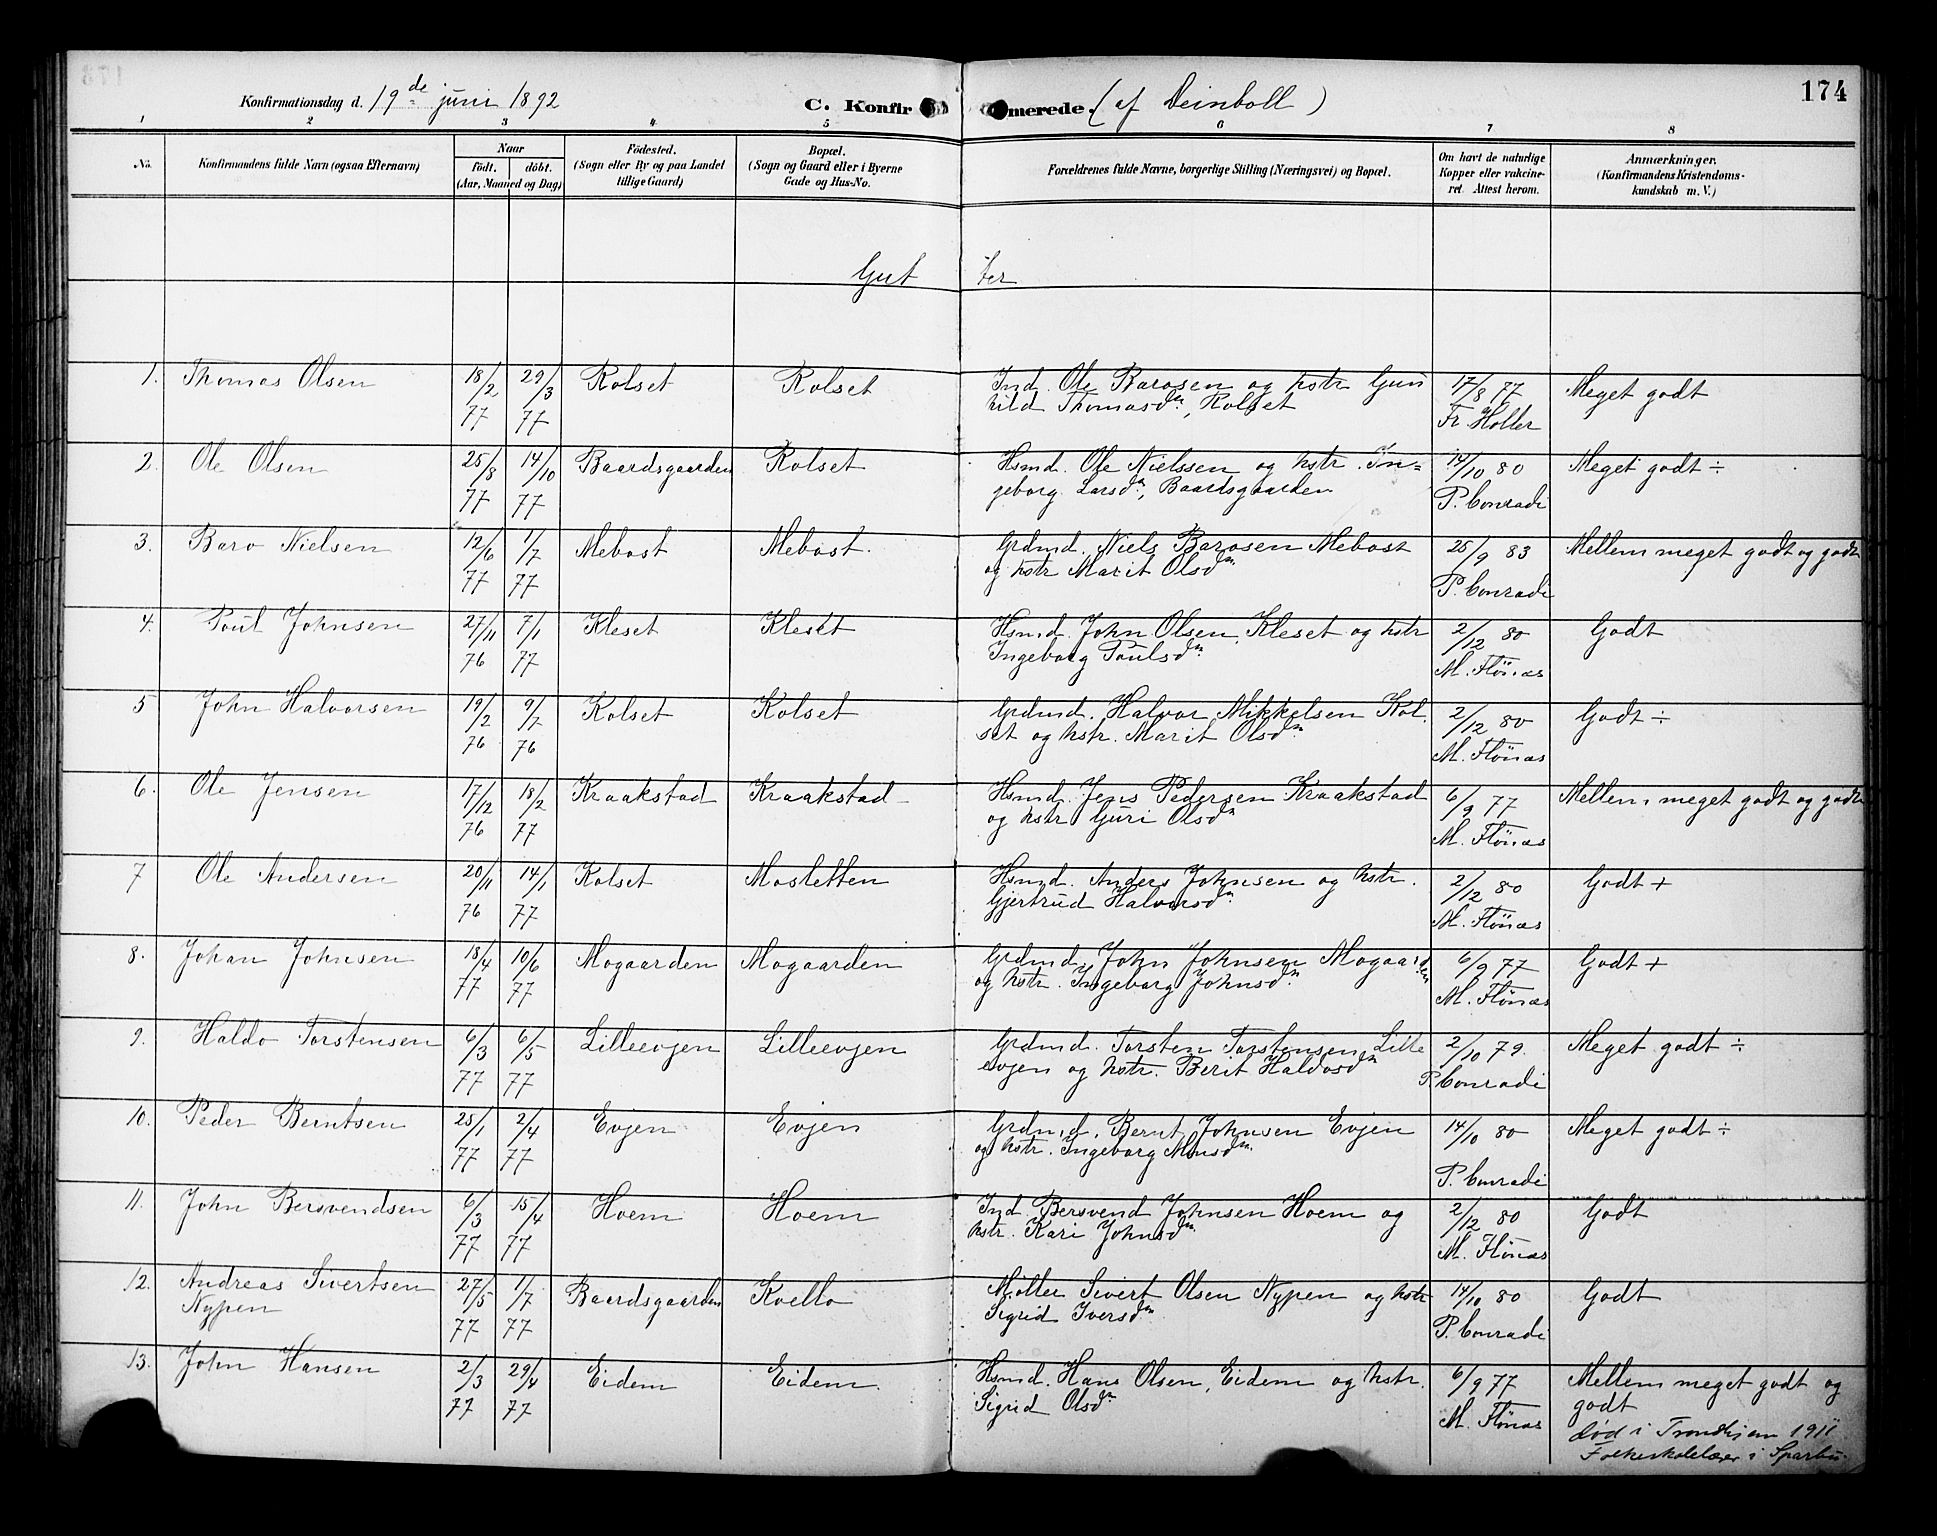 174
Konfirmationsdag d. 19de juni 1892 C. Konfirmerede. (af Deinboll)
1 2 3 4 5 6 7 8
No. Konfirmandens fulde Navn (ogsaa Efternavn) Naar født. døbt. (Aar, Maaned og Dag) Fødested. (Sogn eller By og paa Landet tillige Gaard) Bopæl. (Sogn og Gaard eller i Byerne Gade og Hus-No. Forældrenes fulde Navne, borgerlige Stilling (Næringsvei) og Bopæl. Om havt de naturlige Kopper eller vakcineret. Attest herom. Anmærkninger. (Konfirmandens Kristendomskundskab m. V.)
Gutter
1. Thomas Olsen 18/2 77 29/3 77 Rolset Rolset Ind. Ole Barosen og hstr Gun 17/8 77 Meget godt
hild Thomasdn, Rolset Fr. Holler
2. Ole Olsen 25/8 77 14/10 77 Baardsgaarden Rolset Hsmd. Ole Nielssen og hstr. In= 14/10 80 Meget godt ÷
geborg Larsdn, Baardsgaarden P. Conradi
3. Baro Nielsen 12/6 77 1/7 77 Mebost Mebost. Grdmd. Niels Barosen Mebost 25/9 83 Mellem meget godt og godt
og hstr Marit Olsdn P. Conradi
4. Poul Johnsen 27/11 76 7/1 77 Kleset Kleset Hsmd. John Olsen, Kleset og hstr 2/12 80 Godt
Ingeborg Poulsdn M. Flönæs
5 John Halvorsen 19/2 76 9/7 76 Kolset Kolset Grdmd. Halvor Mikkelsen Kol- 2/12 80 Godt ÷
set og hstr. Marit Olsdn M. Flönæs
6. Ole Jensen 17/12 76 18/2 77 Kraakstad Kraakstad Hsmd. Jens Pedersen Kraakstad 6/9 77 Mellem meget godt og godt
og hstr Guri Olsdn M. Flönæs
7 Ole Andersen 20/11 76 14/1 77 Kolset Mosletten Hsmd. Anders Johnsen og hstr. 2/12 80 Godt +
Gjertrud Halvorsdn M. Flönæs
8. Johan Johnsen 18/4 77 10/6 77 Mogaarden Mogaarden Grdmd. John Johnsen Mogaarden 6/9 77 Godt +
og hstr. Ingeborg Johnsdn M. Flönæs
9. Haldo Torstensen 6/3 77 6/5 77 Lilleevjen Lilleevjen Grdmd. Torsten Torstensen Lille 2/10 79. Meget godt ÷
evjen og hstr. Berit Haldosdn P. Conradi
10. Peder Berntsen 25/1 77 2/4 77 Evjen Evjen Grdmd. Bernt Johnsen Evjen 14/10 80 Meget godt ÷
og hstr. Ingeborg Monsdn P. Conradi
11. John Bersvendsen 6/3 77 15/4 77 Hoem Hoem Ind. Bersvend Johnsen Hoem og 2/12 80 Godt
hstr. Kari Johnsdn M. Flönæs
12. Andreas Sivertsen 27/5 77 1/7 77 Baardsgaarden Kvello Møller Sivert Olsen Nypen og hstr 14/10 80 Godt
Nypen Sigrid Iversdn P. Conradi
13. John Hansen 2/3 77 29/4 77 Eidem Eidem. Hsmd. Hans Olsen, Eidem og hstr. 6/9 77 Mellem meget godt og
Sigrid Olsdn M. Flönæs godt
død i Trondhjem 1911
Folkeskolelærer i Sparbu